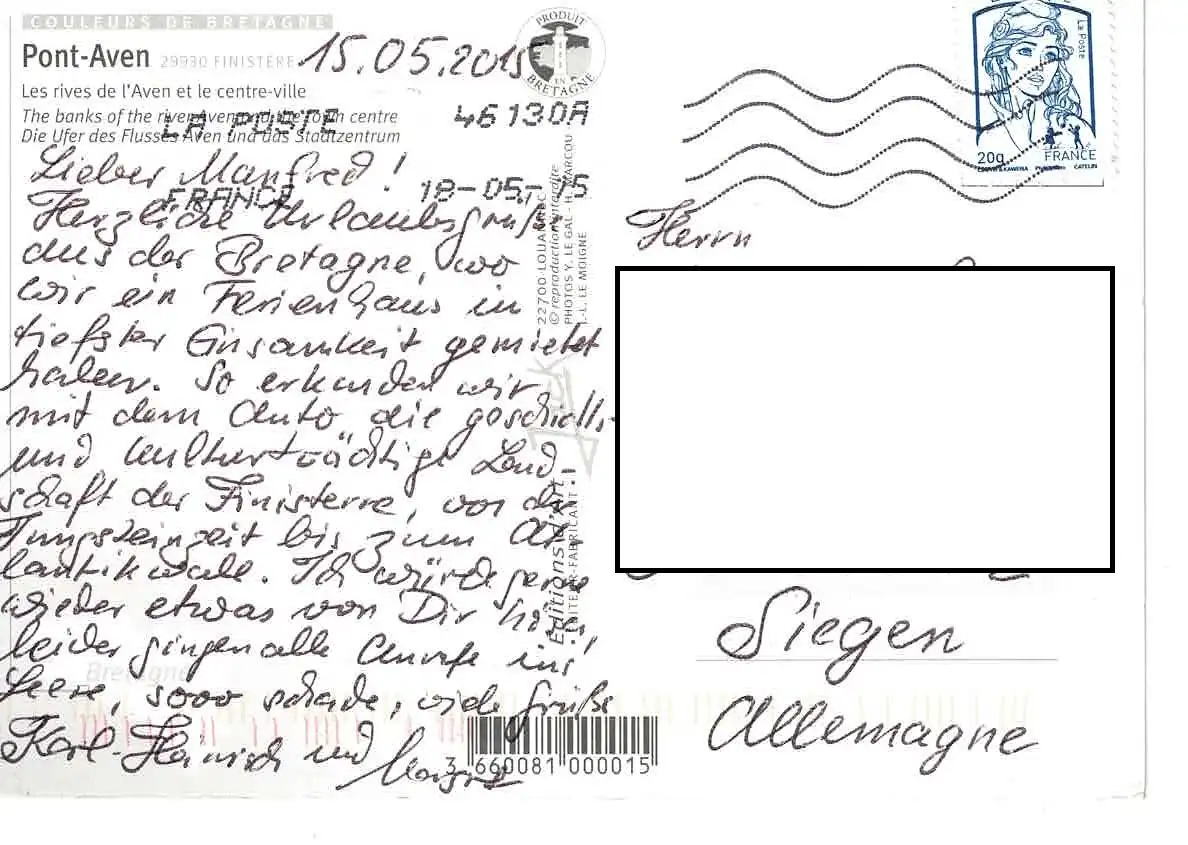 COULEURS DE BRETAGNE
Pont-Aven 29930 FINISTÈRE
15.05.2015
Les rives de l'Aven et le centre-ville
The banks of the river Aven and the town centre
Die Ufer des Flusses Aven und das Stadtzentrum
PRODUIT EN BRETAGNE
LA POSTE
46130A
FRANCE
18-05-15
Lieber Manfred!
Herzliche Urlaubsgrüße
aus der Bretagne, wo
wir ein Ferienhaus in
tiefster Einsamkeit gemietet
haben. So erkunden wir
mit dem Auto die geschichts-
und kulturträchtige Land-
schaft der Finisterre, von der
Jungsteinzeit bis zum At-
lantikwall. Ich würde gerne
wieder etwas von Dir hören,
leider gingen alle Anrufe ins
Leere, sooo schade, viele Grüße
Karl-Heinrich und
22700 LOUANNEC
© reproduction interdite
PHOTOS Y. LE GAL - H. MARCOU
J.-L. LE MOIGNE
Jack
Editions d'Art
Bretagne
3 660081 000015
La Poste
20g
FRANCE
Herrn
Siegen
Allemagne